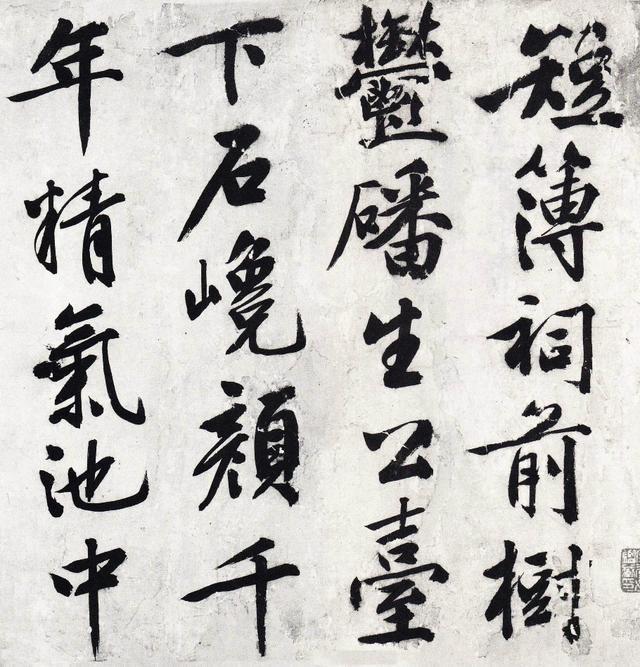 短簿祠前樹
鬱磻生公臺
下石巉顏千
年精氣池中